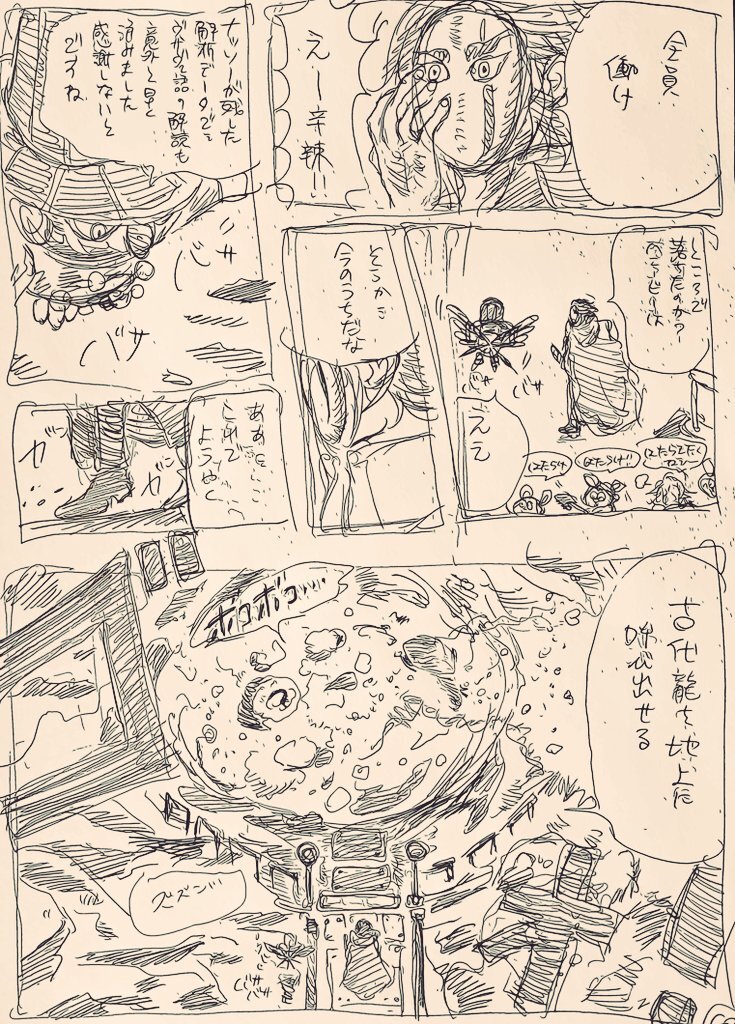 全員
働け
えー辛辣!!
ナッソーが残した
解析データで
の解読も
意外と早く
済みました
感謝しないと
ですね
バサ
バサ
ところで
落ちたのか?
ええ
バサ
バサ
はたらけ
はたらけ!!
はたらきたく
ねぇー
たしかに
今のうちだな
ああ
これで
ようやく
ガン
ガン
古代龍を地上に
呼び出せる
ボコボコ……
ズズン
バサ
バサ